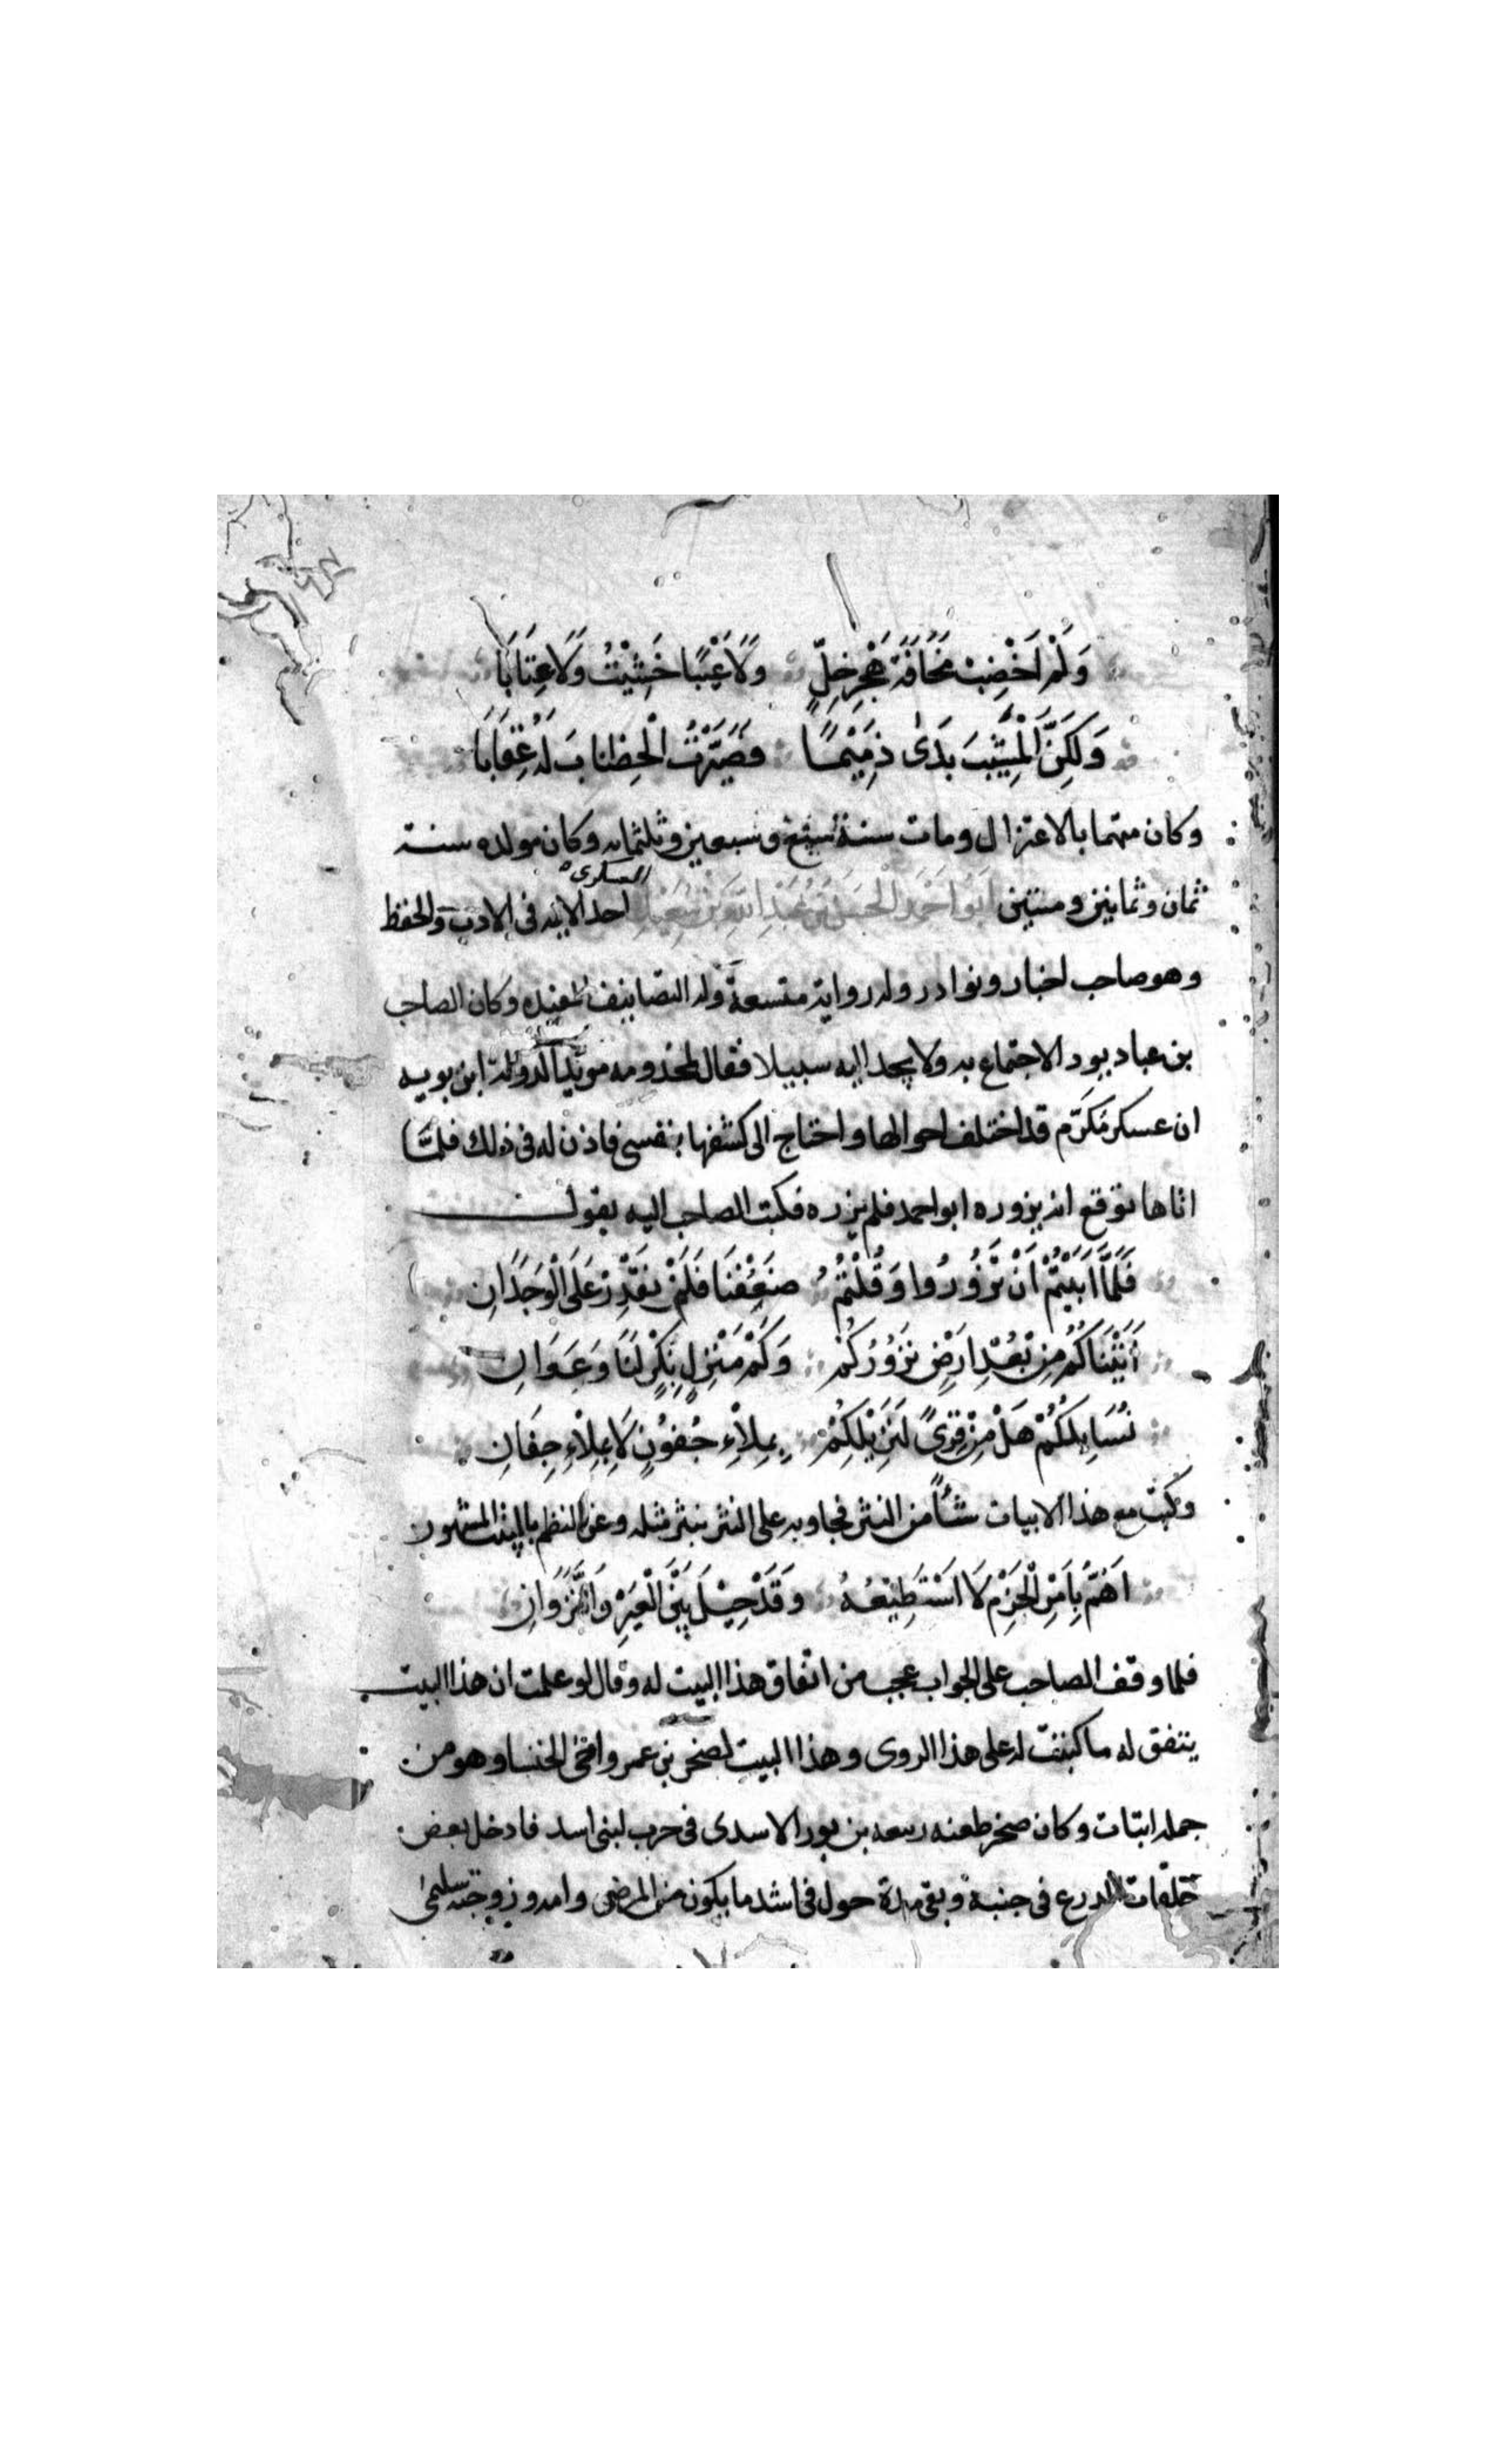 وَلَمْ اَخْضِبْ مَخَافَةَ هَجْرِ خِلٍّ وَلَا عَتْبًا خَشِيْتُ وَلَا عِتَابَا
وَلَكِنَّ الْمَشِيْبَ بَدَىٰ ذَمِيْمًا فَصَيَّرْتُ الْخِضَابَ لَهُ عِقَابَا
وكان متهما بالاعتزال ومات سنة سبع وسبعين وثلثمايه وكان مولده سنة
ثمان وثمانين ومئتين اَبُو اَحْمَدَ الْحَسَنُ بْنُ عَبْدِ اللهِ بْنِ سَعِيْدٍ العسكرى احد الايمه فى الادب والحفظ
وهو صاحب اخبار ونوادر وله رواية متسعة وله التصانيف المفيده وكان الصاحب
بن عباد يود الاجتماع به ولا يجد اليه سبيلا فقال لمخدومه مويد الدولة ابن بويه
ان عسكر مُكرَّم قد اختلف احوالها واحتاج الى كشفها بنفسى فاذن له فى ذلك فلمَّا
اتاها توقع ان يزوره ابو احمد فلم يزره فكتب الصاحب اليه يقول
فَلَمَّا اَبَيْتُمْ اَنْ تَزُورُوا وَقُلْتُمُ ضَعُفْنَا فَلَمْ نَقْدِرْ عَلَى الْوَجَدَانِ
اَتَيْنَاكُمُ مِنْ بُعْدِ اَرْضٍ نَزُوْرُكُمْ وَكَمْ مَنْزِلٍ بِكْرٍ لَنَا وَعَوَانِ
نُسَايِلُكُمْ هَلْ مِنْ قِرًى لِنَزِيْلِكُمْ بِمِلْاءِ جُفُوْنٍ لَا بِمِلْاءِ جِفَانِ
وكتب مع هذا الابيات شئاً من النثر فجاوبه على النثر بنثر مثله وعن النظم بالبيت المشهور
اَهُمُّ بِاَمْرِ الْحَزْمِ لَا اَسْتَطِيْعُهُ وَقَدْ حِيْلَ بَيْنَ الْعَيْرِ وَالنَّزَوَانِ
فلما وقف الصاحب على الجواب عجب من اتفاق هذا البيت له وقال لو علمت ان هذا البيت
يتفق له ما كتبت له على هذا الروى وهذا البيت لصخر بن عمرو اخى الخنسا وهو من
جمله ابيات وكان صخر طعنه ربيعه بن ثور الاسدى فى حرب لبنى اسد فادخل بعض
حلقات الدرع فى جنبه وبقى مدة حول فى اشد ما يكون من المرض وامه وزوجته سليمى